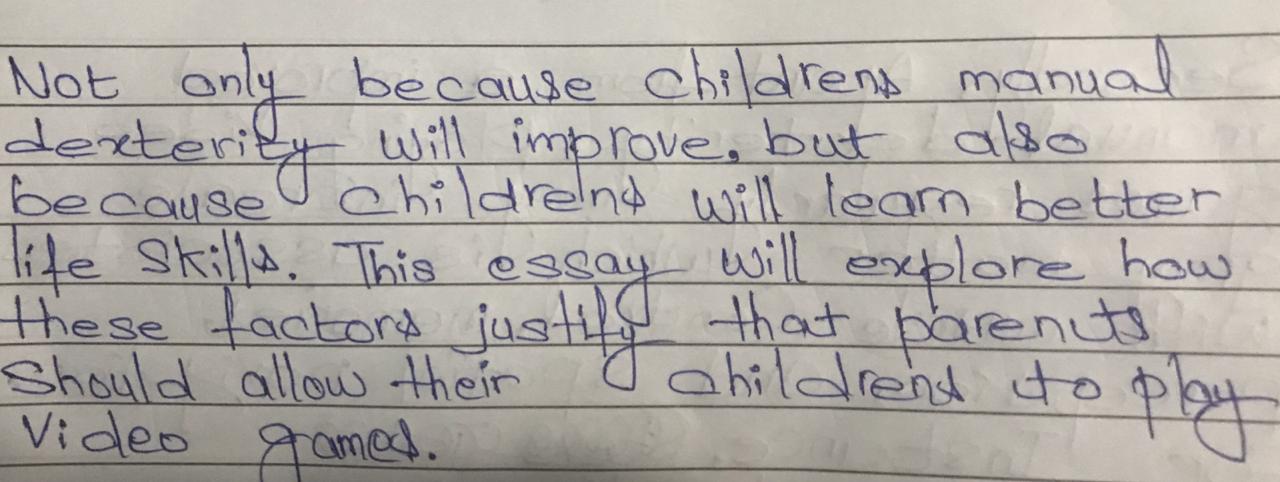 Not only because childrens manual
dexterity will improve, but also
because childrens will learn better
life skills. This essay will explore how
these factors justify that parents
should allow their childrens to play
video games.